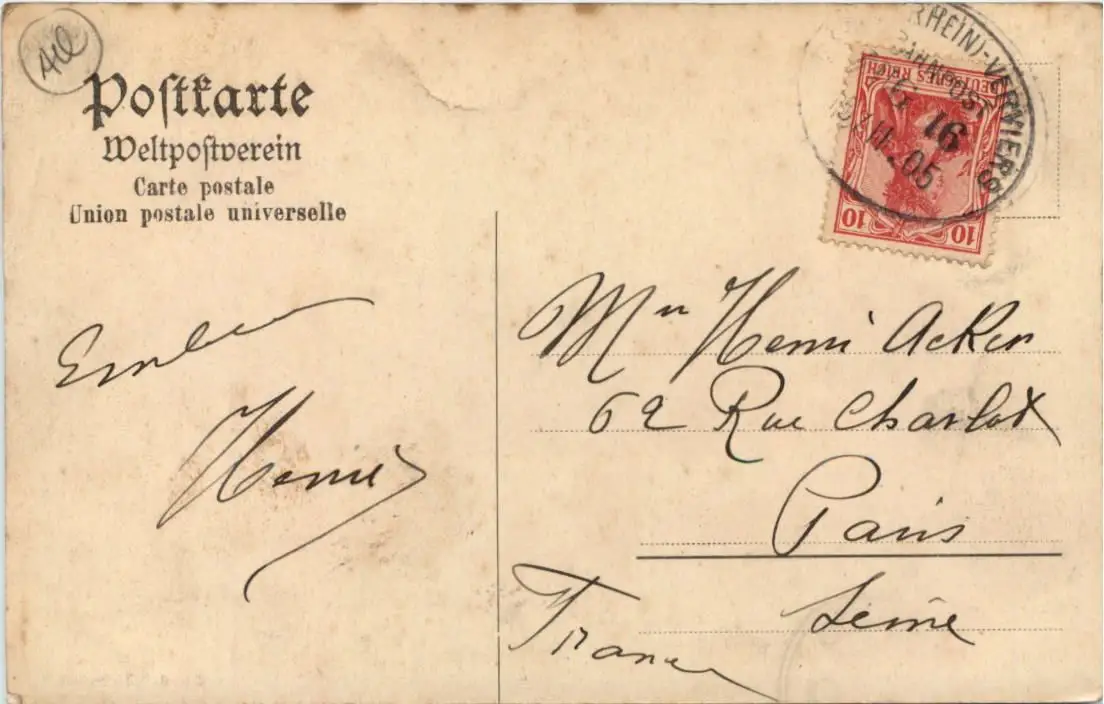 All
Postkarte
Weltpostverein
Carte postale
Union postale universelle
(RHEIN)-VERVIERS
BAHNPOST
16
05
DEUTSCHES REICH
10 10
Henri
Mr Henri Acker
62 Rue Charlot
Paris
Seine
France